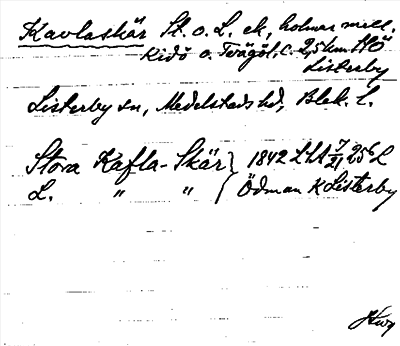 Kavlaskär St. o. L. ek, holmar mell.
Kidö o. Tvägöl, c. 2,5 km HÖ
Listerby
Listerby sn, Medelstads hd, Blek. l.
Stora Kafla-Skär } 1842 LSA 7/21, 256 L
L. " " { Ödman K Listerby